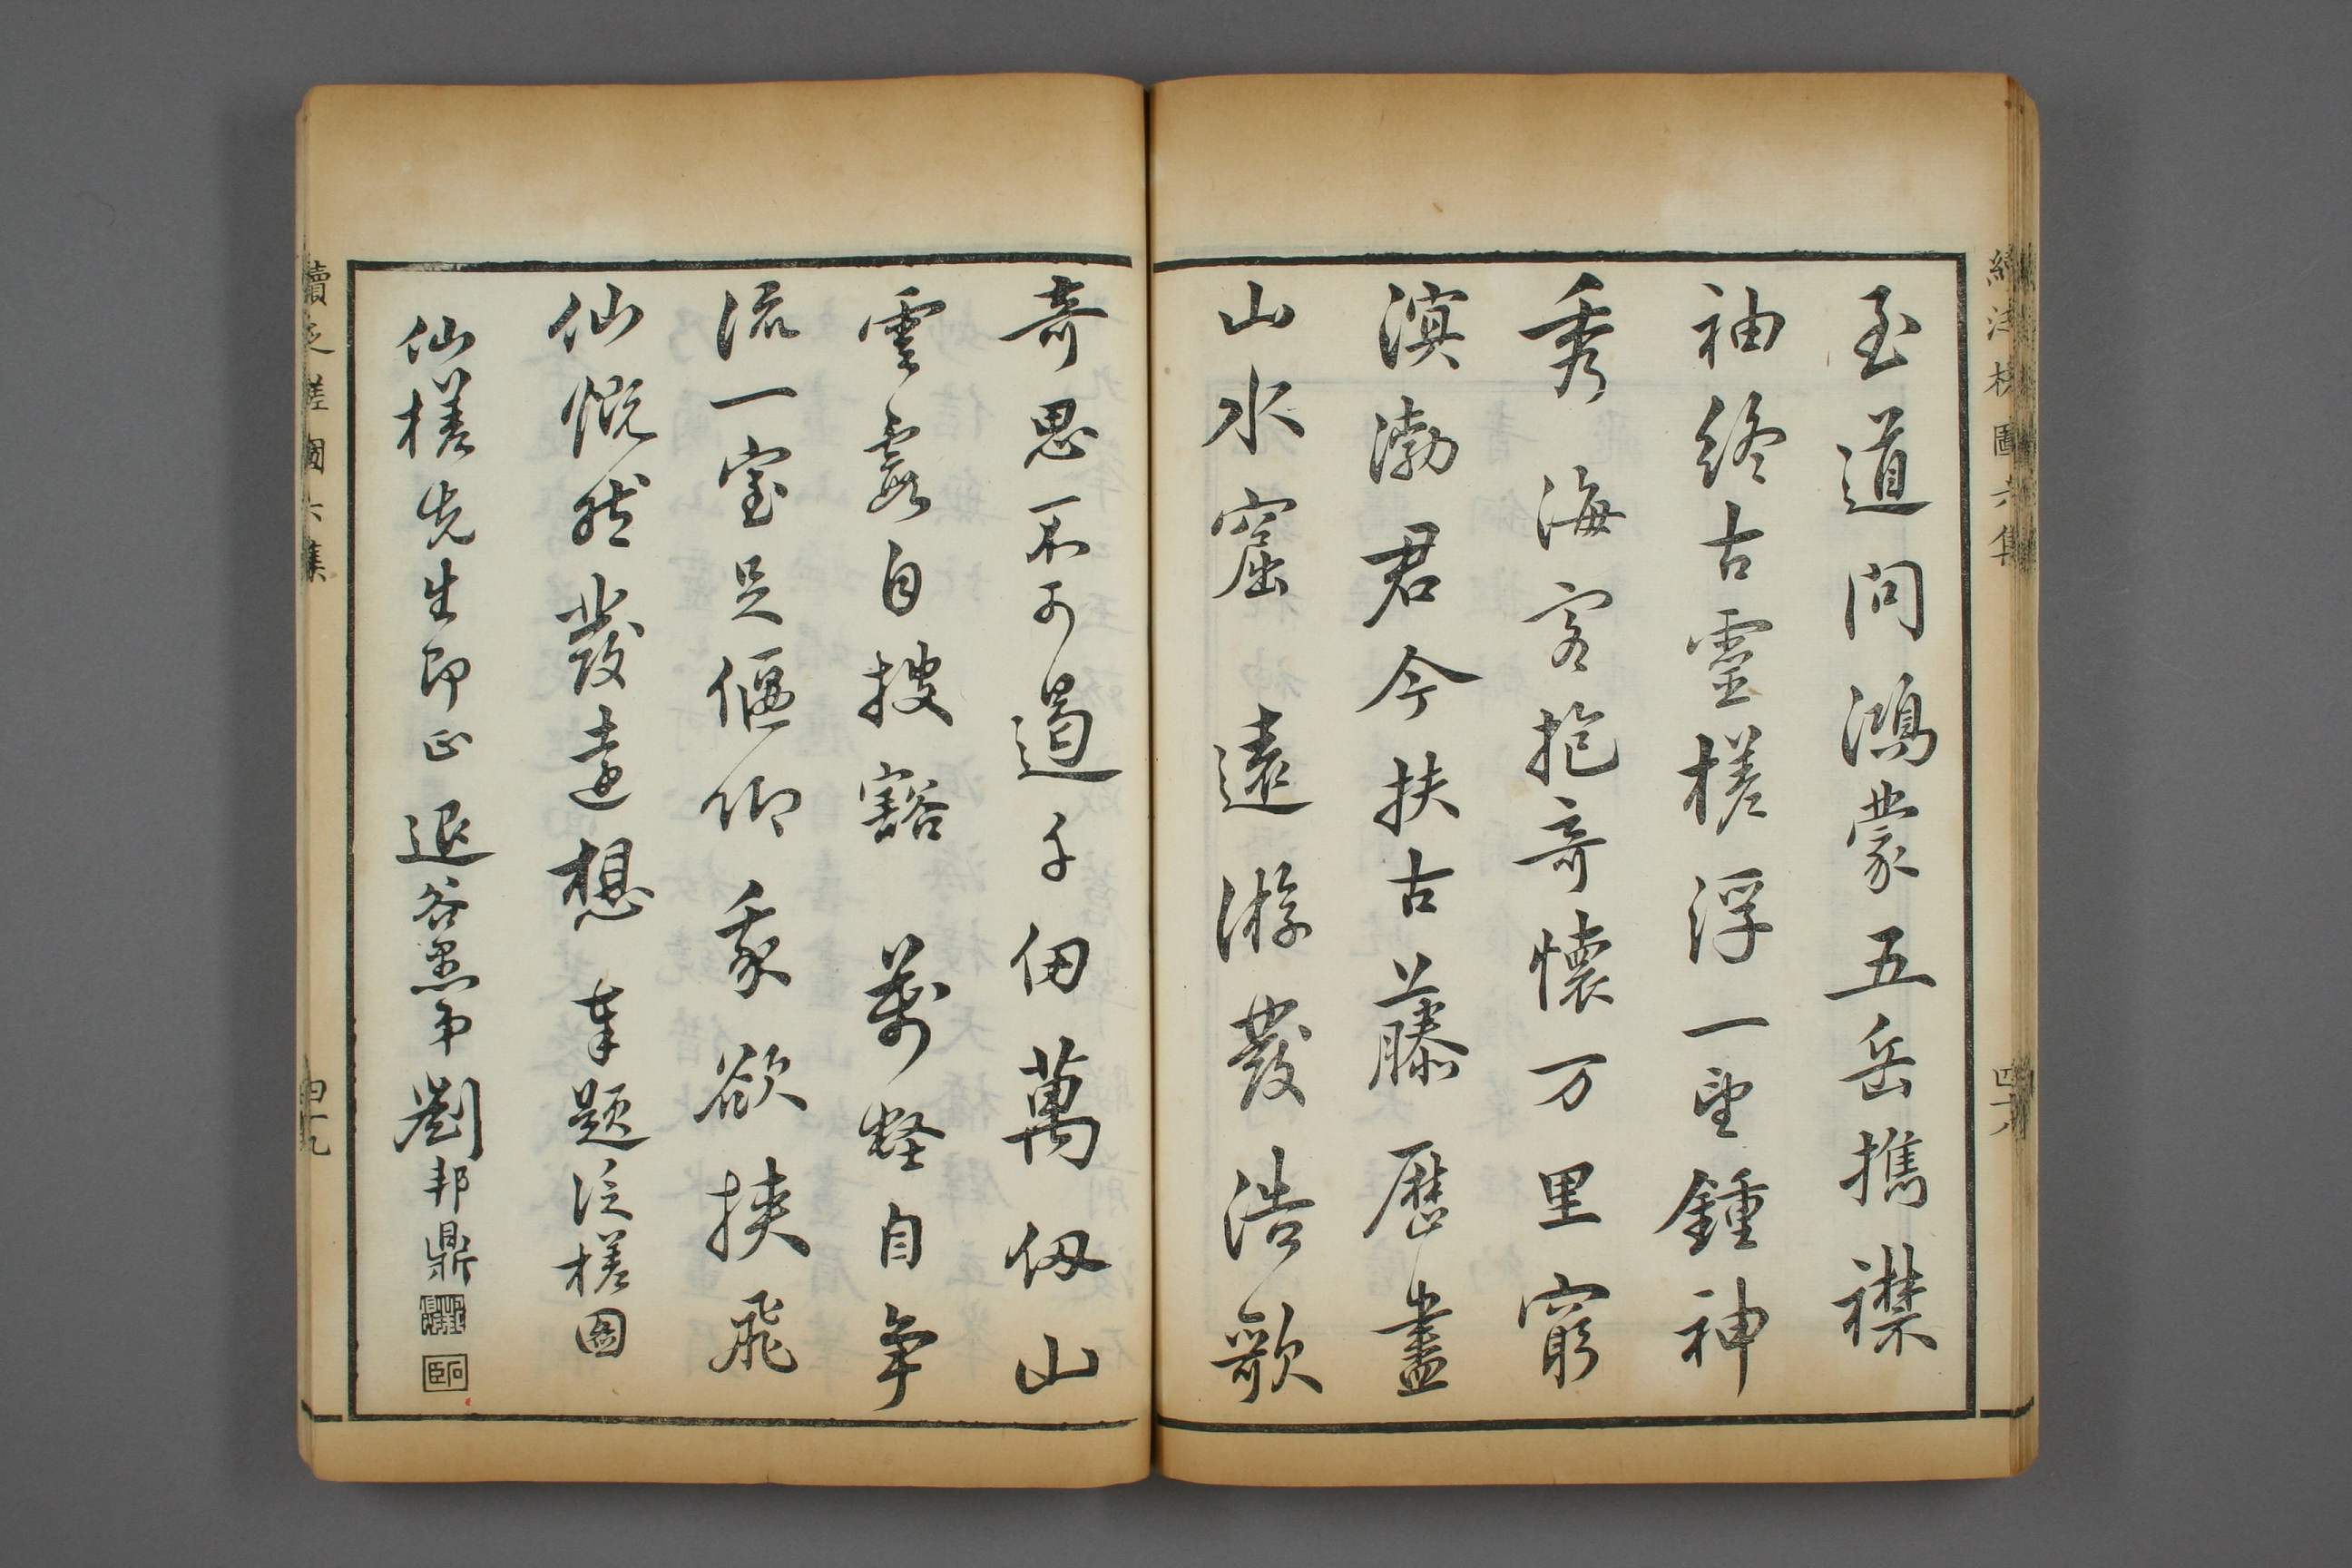 至道问鴻蒙五岳攜襟
袖終古靈槎浮一望鍾神
秀海客抱奇懷万里窮
溟渤君今扶古藤歷盡
山水窟遠游發浩歌
奇思不可遏千仞萬仞山
雲霞自披豁萬壑自争
流一室足偃仰我欲挟飛
仙慨然發遠想奉題泛槎图
仙槎先生即正退谷愚弟劉邦鼎
續泛槎圖六集
四十八
續泛槎圖六集
四十九